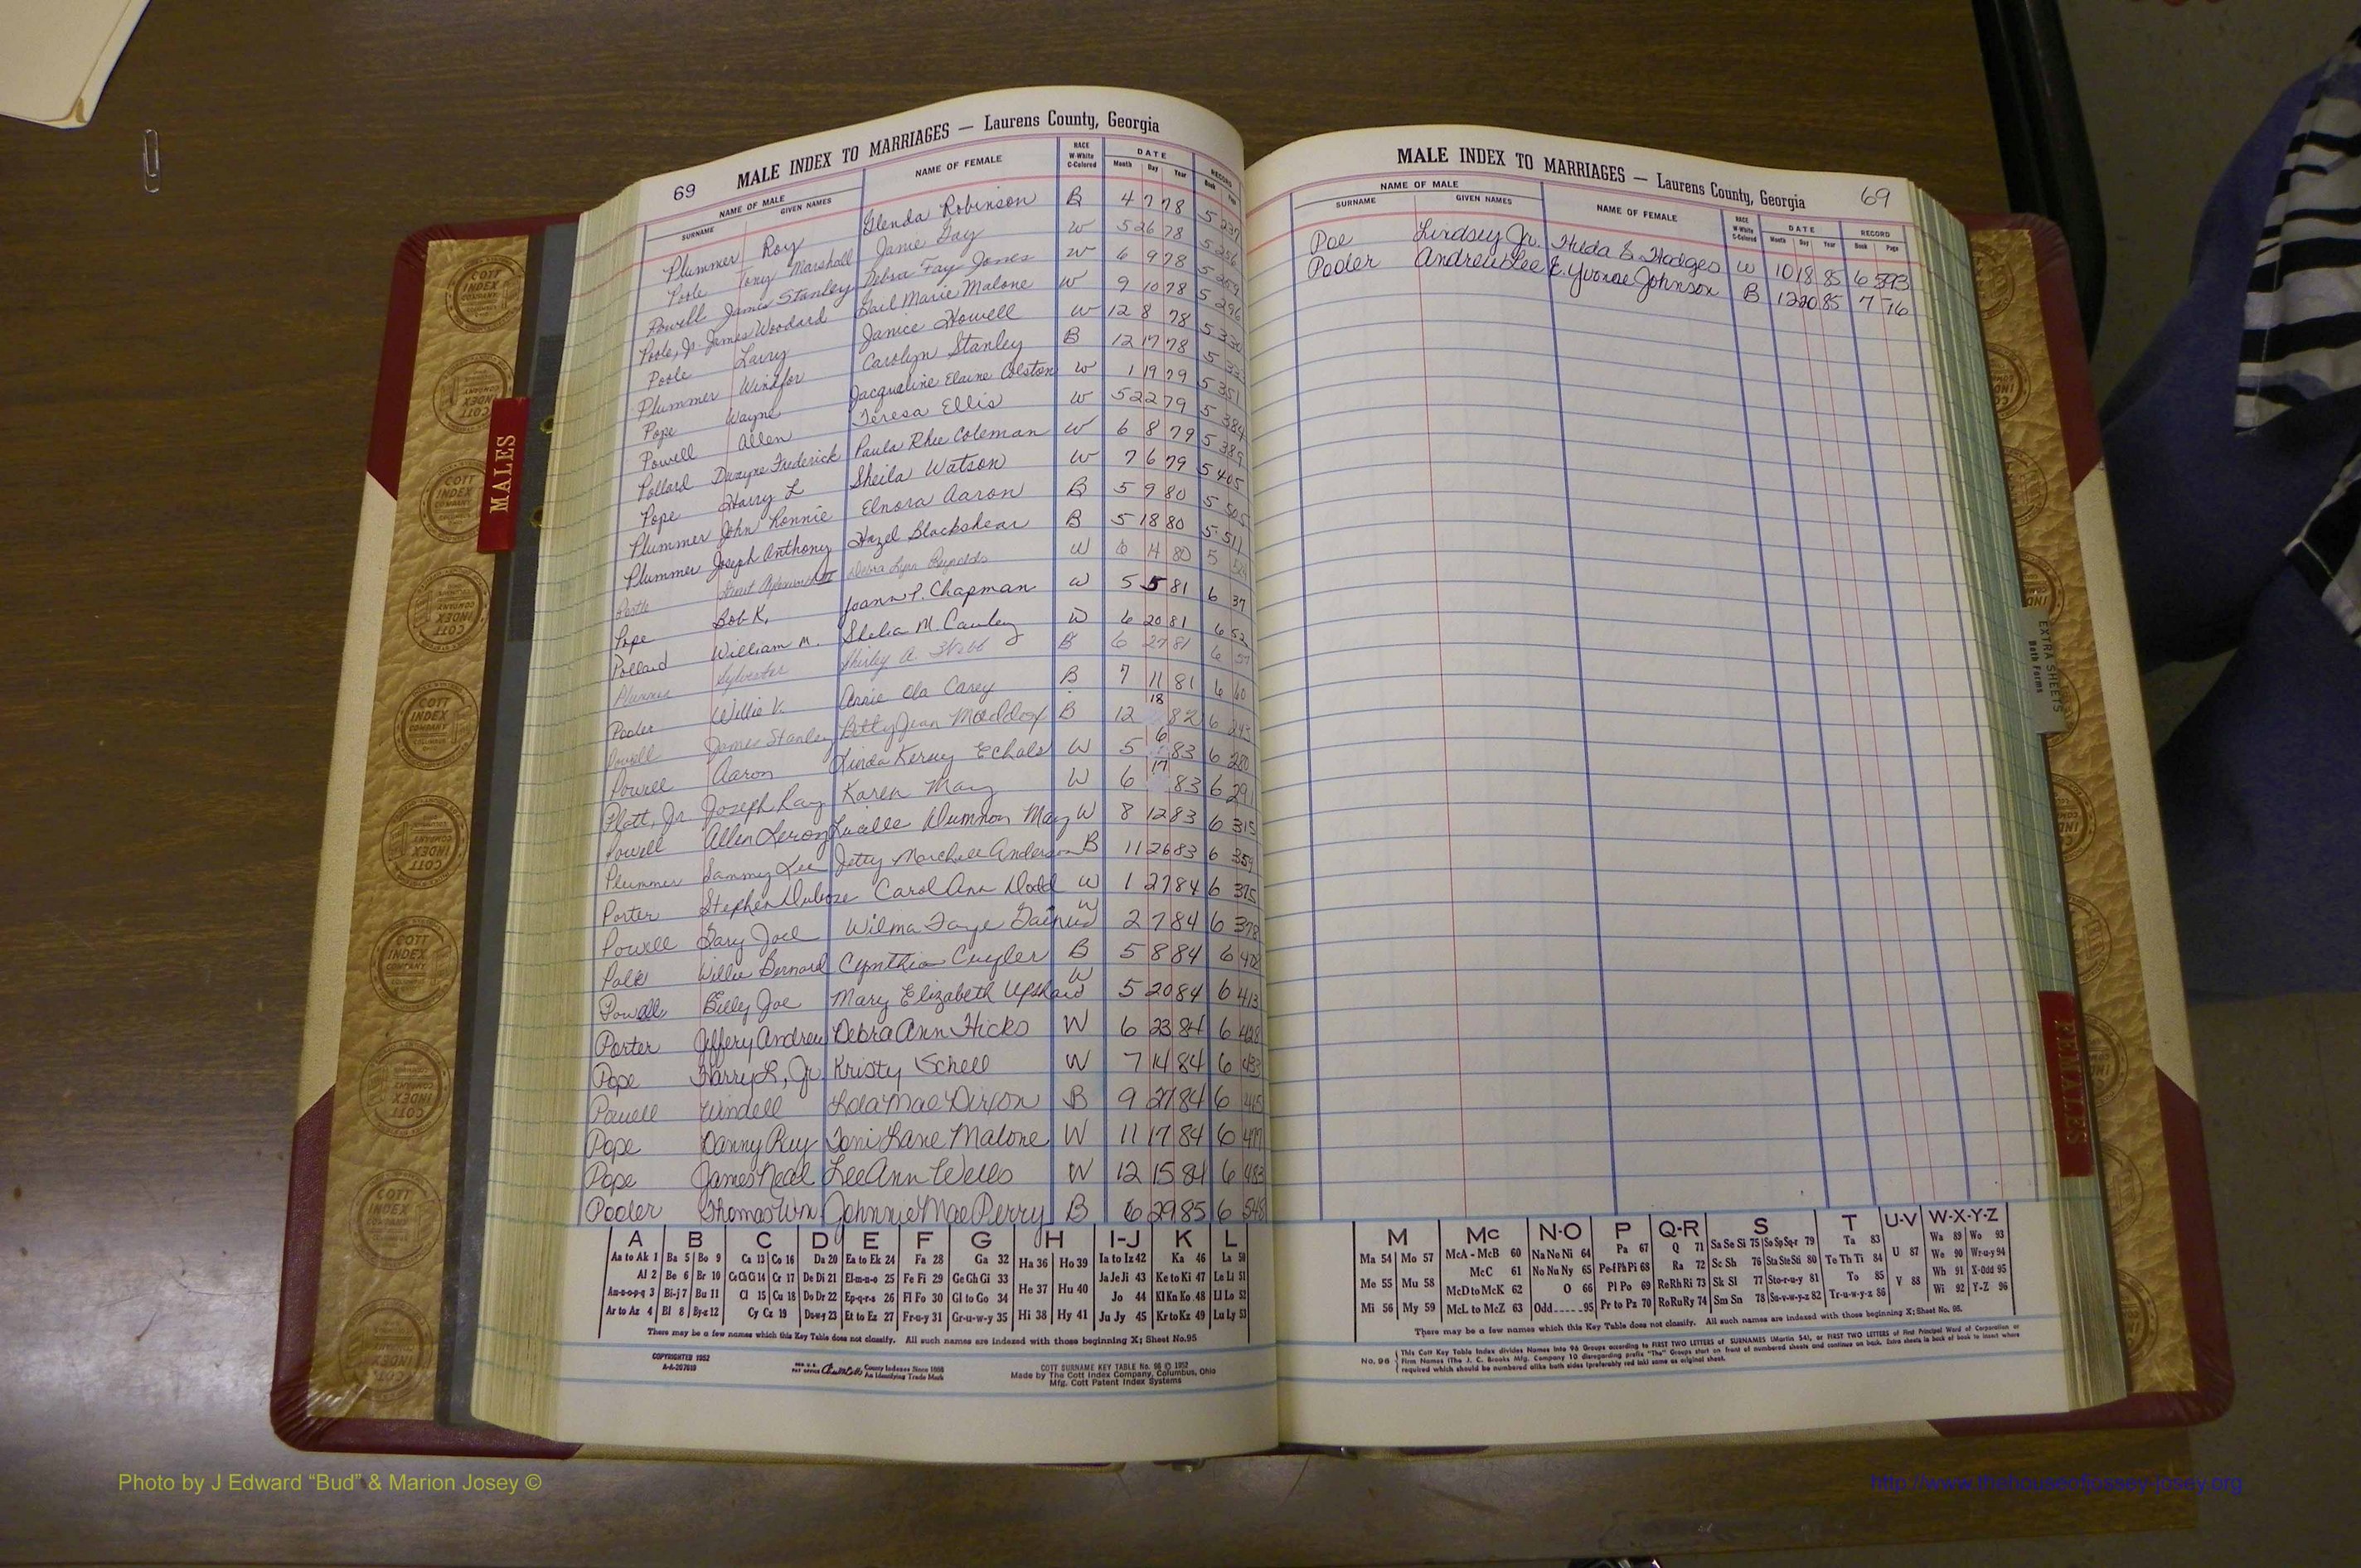 69 MALE INDEX TO MARRIAGES — Laurens County, Georgia
NAME OF MALE NAME OF FEMALE RACE W-White C-Colored DATE RECORD
SURNAME GIVEN NAMES Month Day Year Book Page
Plummer Roy Glenda Robinson B 4 7 78 5 237
Poole Tony Marshall Janie Fay W 5 26 78 5 256
Powell James Stanley Debra Fay Jones W 6 9 78 5
Poole, Jr. James Woodard Gail Marie Malone W 9 10 78 5 296
Poole Larry Janice Howell W 12 8 78 5 330
Plummer Winifor Carolyn Stanley B 12 17 78 5
Pope Wayne Jacqueline Elaine Colston W 1 19 79 5 351
Powell Allen Teresa Ellis W 5 22 79 5 384
Pollard Dwayne Frederick Paula Rhee Coleman W 6 8 79 5 389
Pope Harry L Sheila Watson W 7 6 79 5 405
Plummer John Ronnie Elnora Aaron B 5 9 80 5 505
Plummer Joseph Anthony Hazel Blackshear B 5 18 80 5 511
Debra Lynn Reynolds W 6 14 80 5
Pope Bob K. Joann P. Chapman W 5 5 81 6 37
Pollard William M. Shelia M. Cauley W 6 20 81 6 52
Plummer Sylvester Shirley A. Webb B 6 27 81 6
Pooler Willie V. Annie Ola Carey B 7 11 81 6 60
Powell James Stanley Betty Jean Maddox B 12 18 82 6 243
Powell Aaron Linda Kersey Echols W 5 6 83 6 280
Platt, Jr. Joseph Ray Karen May W 6 17 83 6 291
Powell Allen Leroy Lucille May W 8 12 83 6 315
Plummer Sammy Lee Jetty Marchell Anderson B 11 26 83 6 359
Porter Stephen Dubose Carol Ann Dodd W 1 27 84 6 375
Powell Gary Joel Wilma Faye W 2 7 84 6 378
Polk Willie Bernard Cynthia Cuyler B 5 8 84 6
Powell Billy Joe Mary Elizabeth Upshaw W 5 20 84 6 413
Porter Jeffery Andrew Debra Ann Hicks W 6 23 84 6 428
Pope Harry L., Jr. Kristy Schell W 7 14 84 6 433
Powell Windell Lola Mae Dixon B 9 27 84 6
Pope Danny Ray Toni Lane Malone W 11 17 84 6
Pope James Neal Lee Ann Wells W 12 15 84 6 483
Pooler Thomas Wm Johnnie Mae Perry B 6 29 85 6 548
A B C D E F G H I-J K L
Aa to Ak 1 Ba 5 Bo 9 Ca 13 Co 16 Da 20 Ea to Ek 24 Fa 28 Ga 32 Ha 36 Ho 39 Ia to Iz 42 Ka 46 La 50
Al 2 Be 6 Br 10 Ce Ch Ci 14 Cr 17 De Di 21 El-m-n-o 25 Fe Fi 29 Ge Gh Gi 33 He 37 Hu 40 Ja Je Ji 43 Ke to Ki 47 Le Li 51
Am-n-o-p-q 3 Bi-j 7 Bu 11 Cl 15 Cu 18 Do Dr 22 Ep-q-r-s 26 Fl Fo 30 Gl to Go 34 Jo 44 Kl Kn Ko 48 Ll Lo 52
Ar to Az 4 Bl 8 By-z 12 Cy Cz 19 Du-w-y 23 Et to Ez 27 Fr-u-y 31 Gr-u-w-y 35 Hi 38 Hy 41 Ju Jy 45 Kr to Kz 49 Lu Ly 53
There may be a few names which this Key Table does not classify. All such names are indexed with those beginning X; Sheet No. 95
COPYRIGHTED 1952
County Indexes Since 1888
An Identifying Trade Mark
COTT SURNAME KEY TABLE No. 96 © 1952
Made by The Cott Index Company, Columbus, Ohio
Mfg. Cott Patent Index Systems
MALE INDEX TO MARRIAGES — Laurens County, Georgia 69
NAME OF MALE NAME OF FEMALE RACE W-White C-Colored DATE RECORD
SURNAME GIVEN NAMES Month Day Year Book Page
Poe Lindsey Jr. Hilda S. Hodges W 10 18 85 6 593
Pooler Andrew Lee E. Yvonne Johnson B 12 20 85 7 76
M Mc N-O P Q-R S T U-V W-X-Y-Z
Ma 54 Mo 57 McA - McB 60 Na Ne Ni 64 Pa 67 Q 71 Sa Se Si 75 So Sp Sq-r 79 Ta 83 U 87 Wa 89 Wo 93
Me 55 Mu 58 McC 61 No Nu Ny 65 Pe-f Ph Pi 68 Ra 72 Sc Sh 76 Sta Ste Sti 80 Te Th Ti 84 We 90 Wr-u-y 94
McD to McK 62 O 66 Pl Po 69 Re Rh Ri 73 Sk Sl 77 Sto-r-u-y 81 To 85 V 88 Wh 91 X-Odd 95
Mi 56 My 59 McL to McZ 63 Odd 95 Pr to Pz 70 Ro Ru Ry 74 Sm Sn 78 Su-v-w-y-z 82 Tr-u-w-y-z 86 Wi 92 Y-Z 96
There may be a few names which this Key Table does not classify. All such names are indexed with those beginning X; Sheet No. 95.
No. 96 This Cott Key Table Index divides Names into 96 Groups according to FIRST TWO LETTERS of SURNAMES (Martin 54), or FIRST TWO LETTERS of First Principal Word of Corporation or
Firm Names (The J. C. Brooks Mfg. Company 10 disregarding prefix "The" Groups start on front of numbered sheets and continue on back. Extra sheets in back of book to insert where
required which should be numbered alike both sides (preferably red ink) same as original sheet.
MALES
FEMALES
EXTRA SHEETS
Both Forms
COTT INDEX COMPANY
Photo by J Edward “Bud” & Marion Josey ©
http://www.thehouseofjossey-josey.org